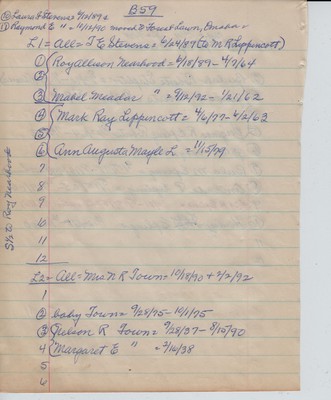 B59
② Laura E Stevens 9/17/89 &
① Raymond E " = 4/12/90 moved to Forest Lawn, Omaha.
L1 = all = J E Stevens = 6/24/89 (to M R Lippincott)
① Roy Allison Nearhood = 6/18/89 - 4/7/64
2
③ Mabel Meador " = 9/12/92 - 1/21/62
④ Mark Ray Lippincott = 4/6/77 - 6/2/63
⑤
⑥ Ann Augusta Mayle L = 11/15/79
7
8
9
10
11
12
S½ to Roy Nearhood
L2 = all = Mrs N R Town = 10/18/90 + 2/2/92
1
② baby Town = 9/28/75 - 10/1/75
③ Nelson R Town = 9/28/37 - 8/15/90
4 Margaret E " = 2/16/38
5
6